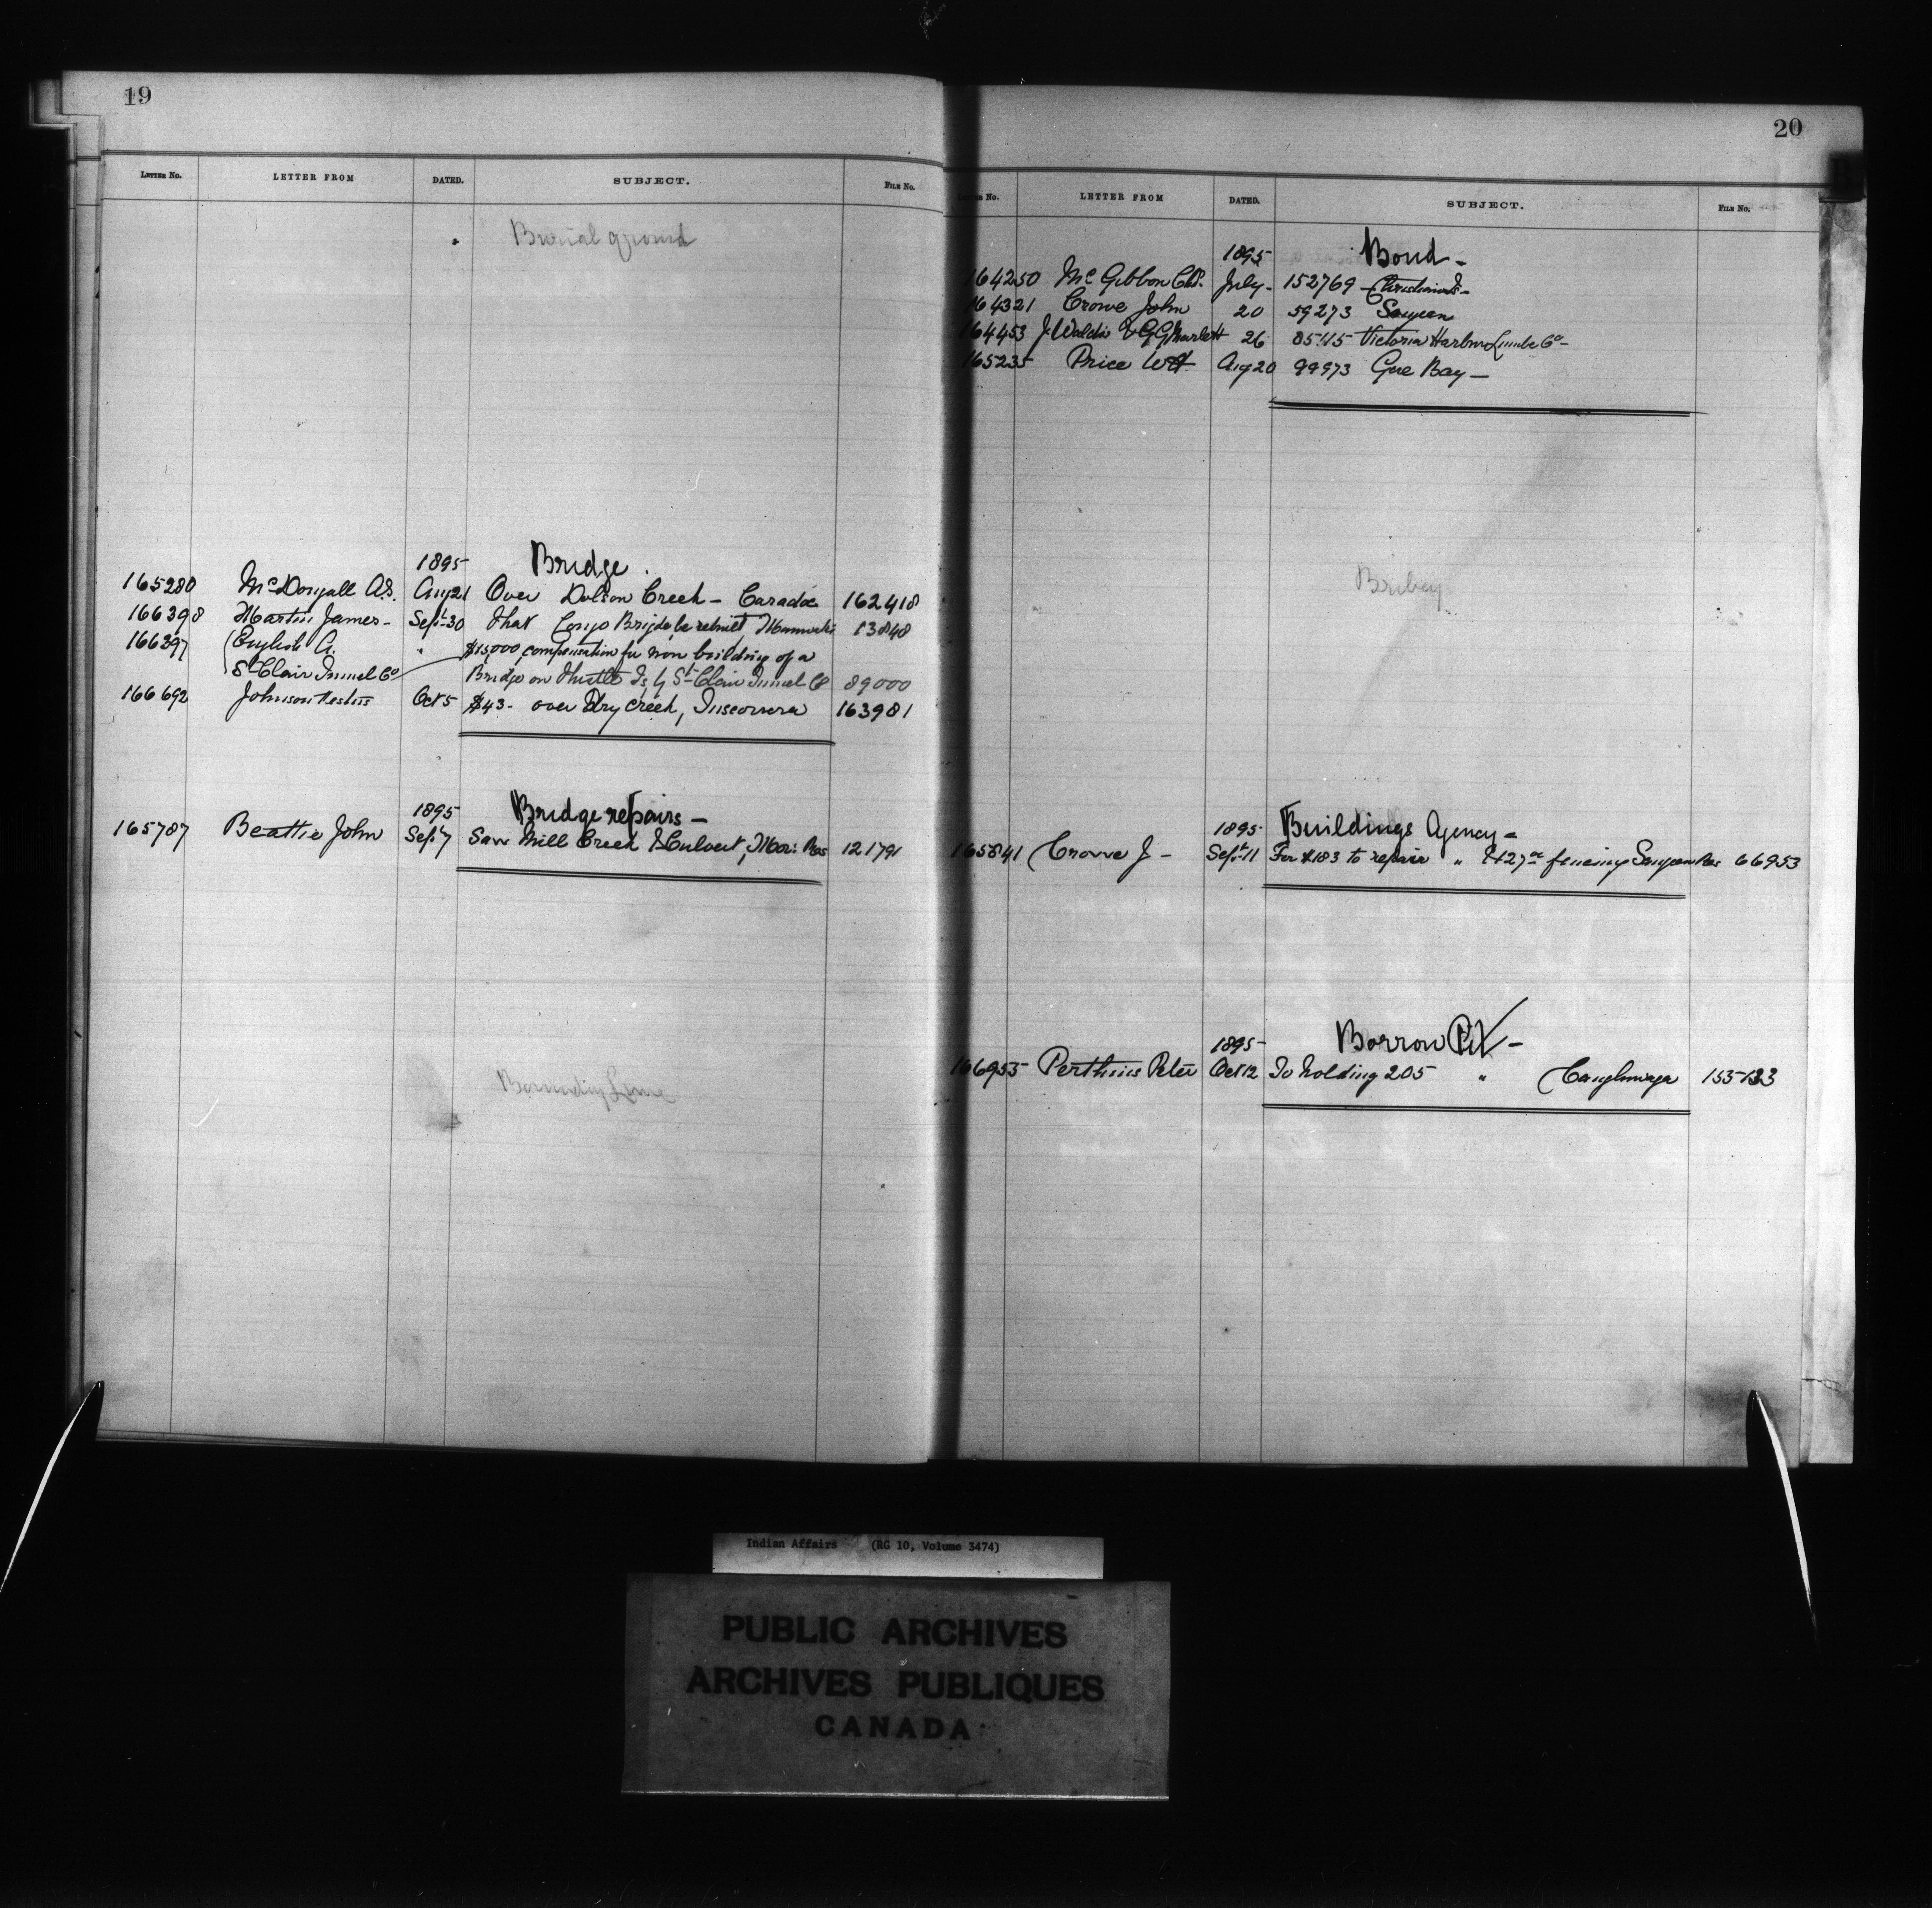 19
LETTER No. LETTER FROM DATED. SUBJECT. FILE No.
Burial ground
1895 Bridge.
165280 McDougall A.S. Aug 21 Over Dolson Creek - Caradoc 162418
166398 Martin James - Sept 30 that Congo Brigde be rebuilt, 13848
166397 English A. " $15,000 compensation for non building of a
St Clair Tunnel Co Bridge on Thistle Is, by St Clair Tunnel Co 89000
166692 Johnson Oct 5 $43 - over Dry Creek, Tuscorora 163981
1895 Bridge repairs -
165787 Beattie John Sept 7 Saw Mill Creek & Culvert, Mor: Res 121791
Boundry Line
20
LETTER No. LETTER FROM DATED. SUBJECT. FILE No.
1895 Bond -
164250 McGibbon Chs. July - 152769 Christian Is -
164321 Crowe John 20 59273 Saugeen
164453 J. Waldie & 26 85115 Victoria Harbour Lumber Co -
165235 Price 	Aug 20 99973 Gore Bay -
Bribery
1895 Buildings Agency -
165841 Crowe J - Sept 11 For $183 to repair " & $27 fencing Saugeen Res 66953
1895 Borrow Pit -
166955 Perthuis Peter Oct 12 To holding 205 " Caughnwaga 155133
Indian Affairs (RG 10, Volume 3474)
PUBLIC ARCHIVES
ARCHIVES PUBLIQUES
CANADA